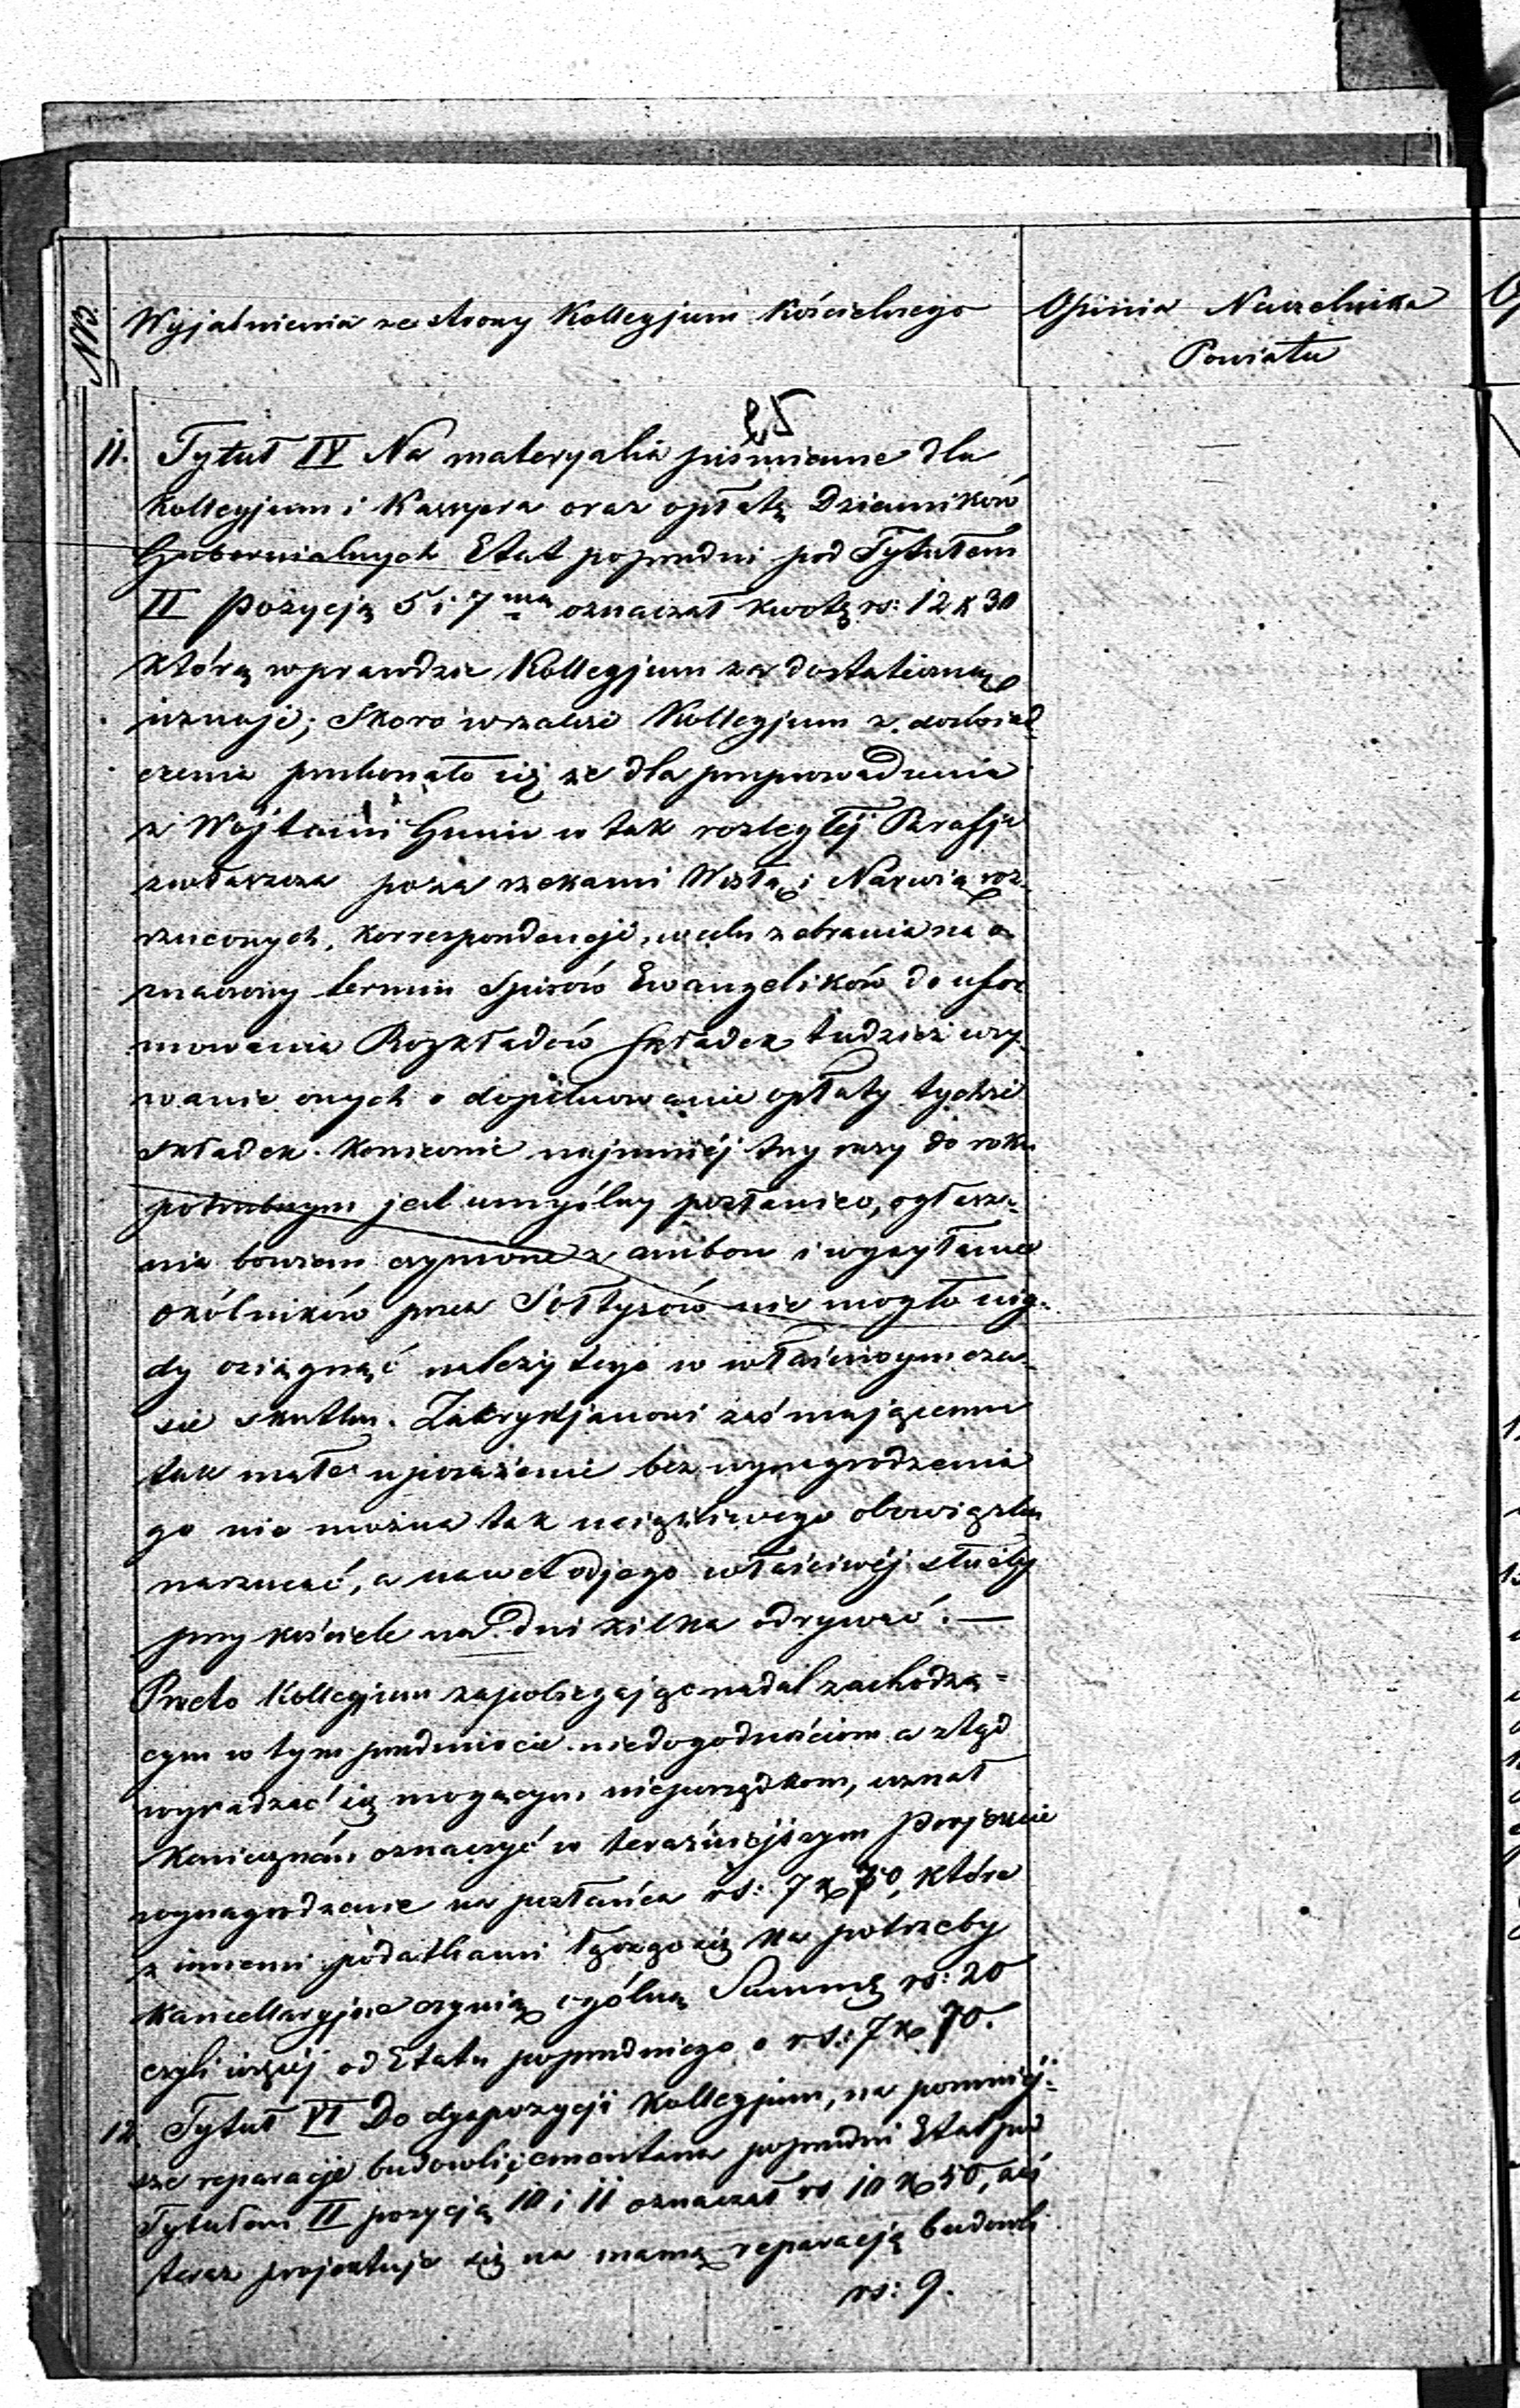 NB.
Wyjaśnienia ze strony Kollegjum Kościelnego
Opinia Naczelnika
Powiatu
25
11. Tytuł IV Na materyalia piśmienne dla
Kollegjum i Kassyera oraz opłatę Dzienników
Gubernialnych Etat poprzedni pod Tytułem
II pozycją 5 i 7ma oznaczał kwotę rs: 12 k 30
którą wprawdzie Kollegjum za dostateczną
uznaje; Skoro wszakże Kollegjum z doświad-
czenia przekonało się że dla przeprowadzenia
z Wójtami Gmin w tak rozległej Parafji
zwłaszcza poza rzekami Wisłą i Narwią roz-
rzuconych, korrespondencji, w celu zebrania na o-
znaczony termin Spisów Ewangelików do ufor-
mowania Rozkładów Składek tudzież wzy-
wanie onych o dopilnowanie opłaty tychże
składek. koniecznie najmniej trzy razy do roku
potrzebnym jest umyślny posłaniec, ogłasza-
nia bowiem czynione z ambon i wysyłanie
okólników przez Sołtysów nie mogło nig-
dy osiągnąć należytego w właściwym cza-
sie skutku. Zakrystjanowi zaś mającemu
tak małe uposażenie bez wynagrodzenia
go nie można tak uciążliwego obowiązku
narzucać, a nawet od jego właściwej służby
przy kościele na dni kilka odrywać. —
Przeto Kollegjum zapobiegając nadal zachodzą=
cym w tym przedmiocie niedogodnościom a ztąd
wyradzać się mogącym nieporządkom, uznał
koniecznem oznaczyć w teraźniejszym Projekcie
wynagrodzenie na posłańca rs: 7 k 70, które
z innemi podatkami łącząc się na potrzeby
Kancellaryjne czynią ogólną Summę rs: 20
czyli więcej od Etatu poprzedniego o rs: 7 k 70.
12. Tytuł VI Do dyspozycji Kollegjum, na pomniej-
sze reparacje budowli i cmentarza poprzedni Etat pod
Tytułem II pozycją 10 i 11 oznaczał rs 10 k 50, zaś
teraz projektuje się na samą reparację budowli
rs: 9.